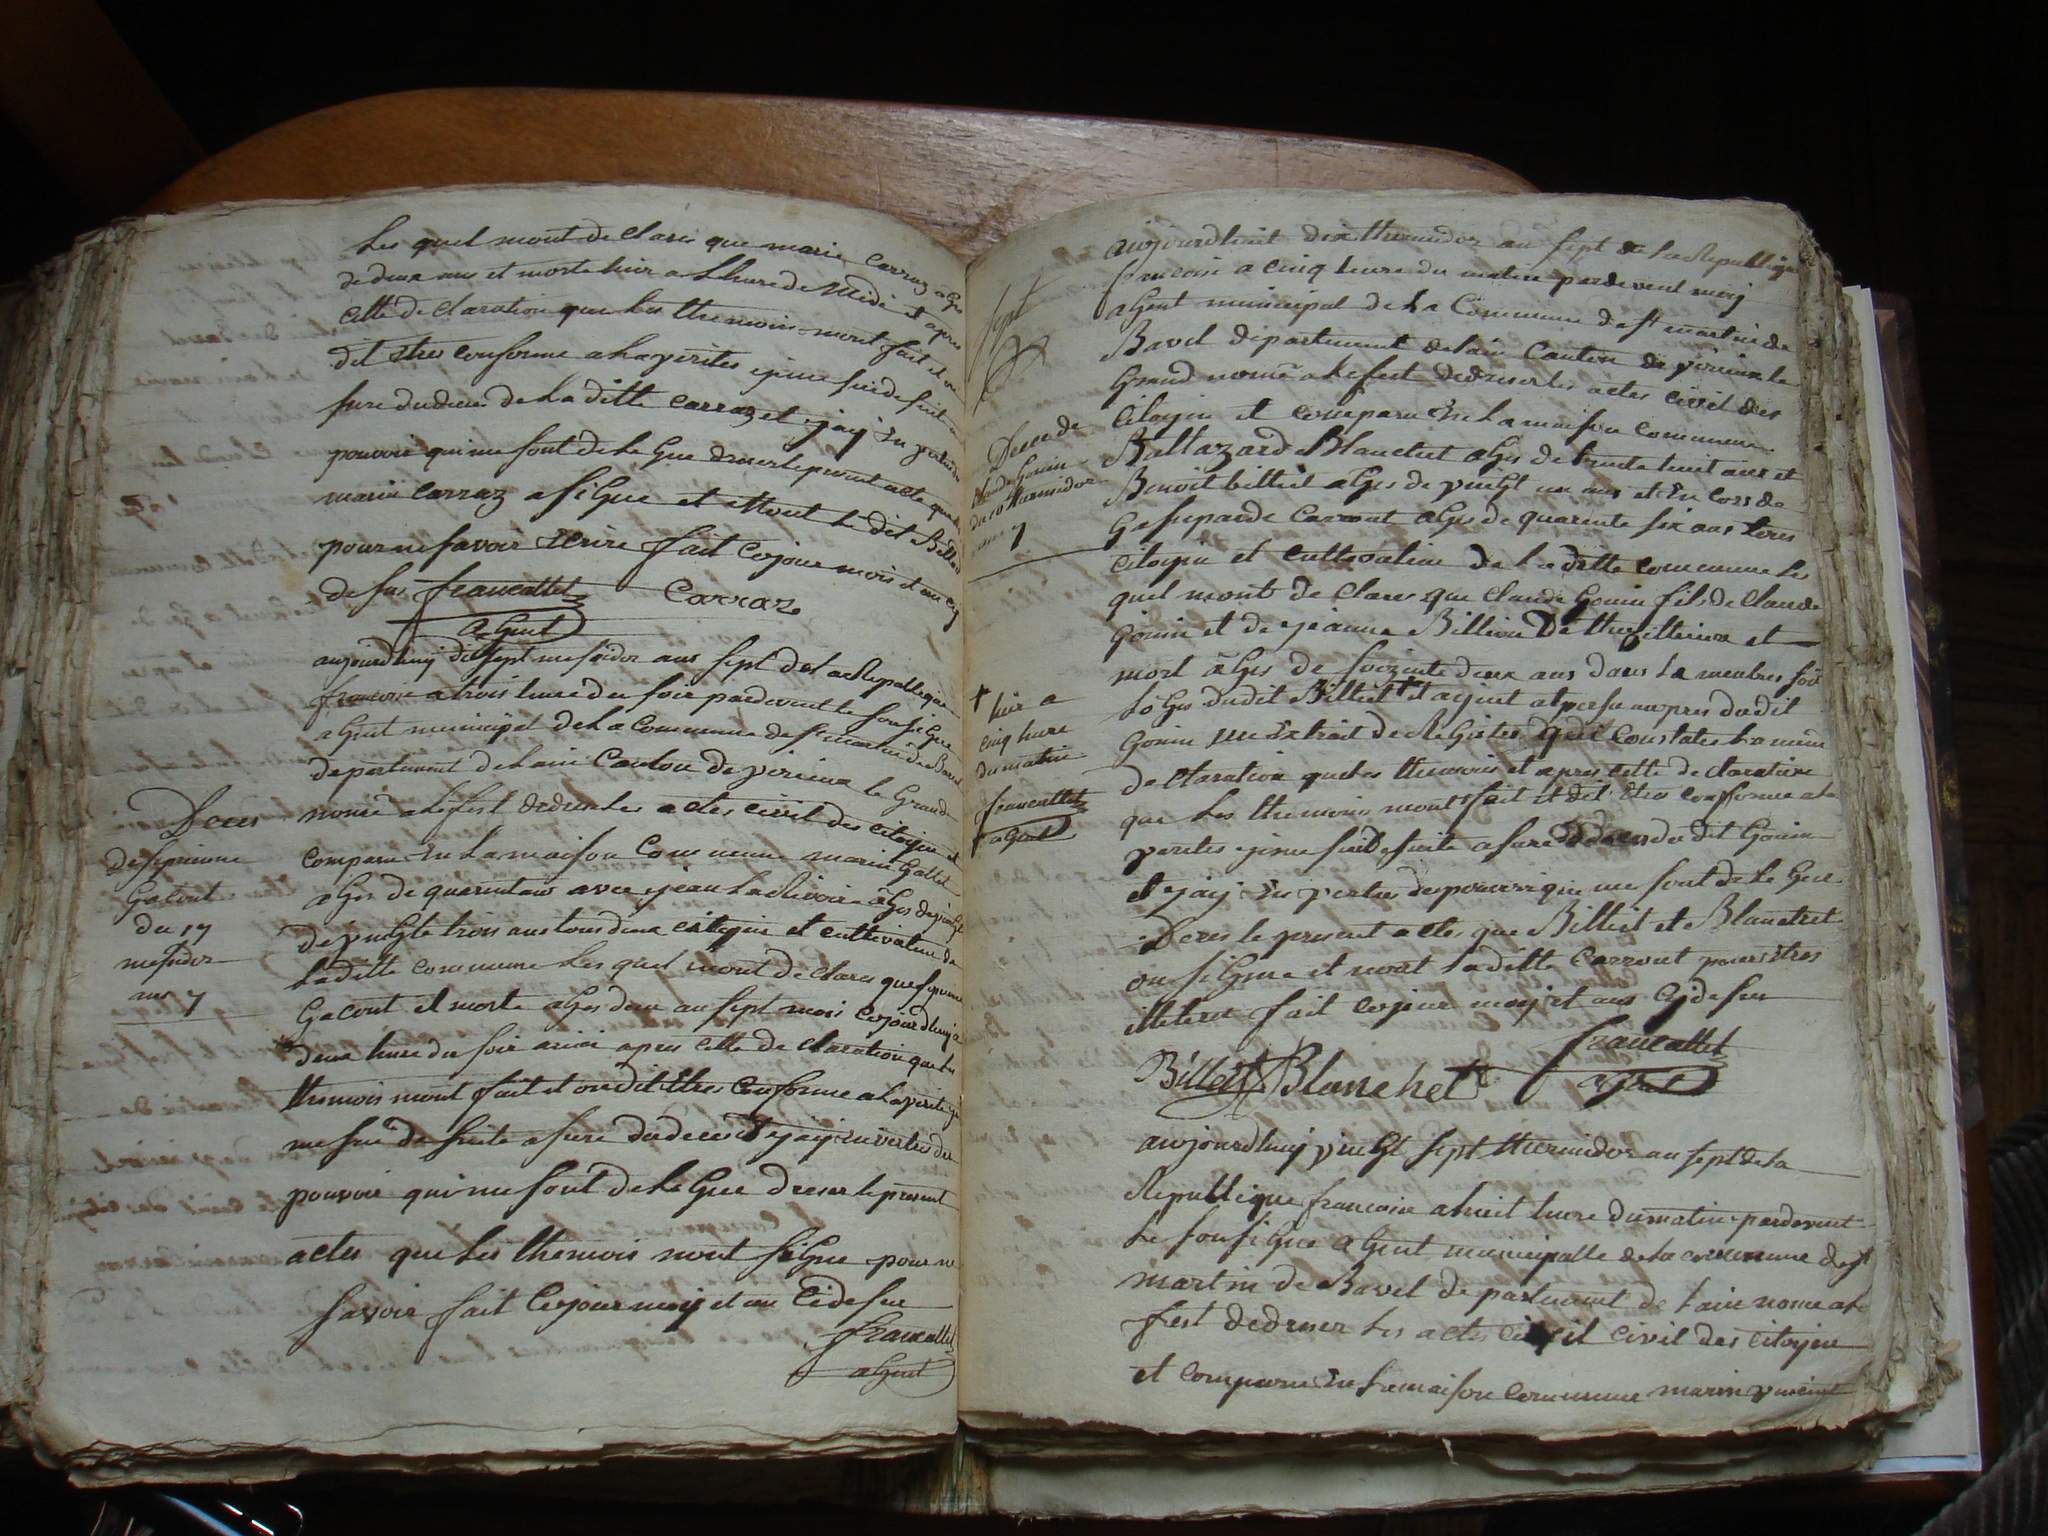 Les quel mont de clares que marie Carraz ages
de deux ans et morte hier a Lheure de Midi et apres
cette de claration que les themoins mont fait et on
dit Etres conforme a la verites je me suis de suite a
sure du deces de la ditte Carraz et j'aÿ En vertu du
pouvoir qui me sont de le Gue dresser le present acte que
marin Carraz a silgue et Mont le dit
pour ne savoir Ecrire fait ce jour mois et an cy
de sus francallet Carraz
agent
aujourdhuy dix sept messidor ans sept de la Republique
francoise a trois heure du soir pardevant le sousigue
agent municipal de La Commune de st martin de Bavel
departement de Lain Canton de virieux le Grand
nomé a Leffest dedresser les actes civil des citoyen et
comparu En La maison Commune marin Gallet
ages de quarentans avec jean La Rivoire âges de vingt
de vingte trois ans tous deux citoyen et cultivateur de
La ditte commune Les quel mont de clares que
Gacont et morte ages deux an sept mois cejourdhuy a
deux heure du soir apres cette de claration que les
themois mont fait et on dit Etres Conforme a La verite je
me suis de suite a sure du deces et j'aÿ En vertus du
pouvoir qui me sont de Le Gue dresser le present
actes que Les themois nont silgue pour ne
savoir fait Cejour moy et an Cidesus
francallet
agent
Deces
de
Gacont
du 17
messidor
ans 7
sept
Deces de
Claude Gonin
du 10 thermidor
an 7
aujourdhuit dix thermidor an sept de La Republique
francoise a cinq heure du matin pardevent moy
agent municipal de La Commune de st martin de
Bavel departement de Lain Canton de virieux le
Grand nomé a Leffest dedresser les actes civil des
Citoyen et comparu En La maison commune
Baltazard Blanchet ages de trente huit ans et
Benoit billiet ages de vingt un ans et En Cors de
Carront ages de quarente six ans tous
citoyen et cultivateur de La ditte commune Les
quel mont de clares que claude Gonin fils de claude
Gonin et de jeanne Billion De et
mort âges de soizente deux ans dans La
Loges du dit Billiet + et aupres du dit
Gonin un Extrait de Registes qui constates La meme
de claration que les themoins et apres cette de claration
que Les themoins mont fait et dit Etres conforme a La
verites je me suis de suite a sure du deces du dit Gonin
et j'aÿ En vertus des pouvoir qui me sont de Le Gue
Deces le present actes que Billiet et Blanchet
on silgue et nont La ditte Carront pour Etres
illeteree fait cejour moy et ans Cy desus
francallet
Billiet Blanchet agent
+ hier a
cinq heure
du matin
francallet
agent
aujourdhuy vingt sept thermidor an sept de La
Republique francoise a huit heure du matin pardevant
Le sousigue agent municipalle de la commune de st
martin de Bavel departement de Lain nome a Le
fest dedresser Les actes civil des citoyen
et comparu En La maison commune marin vincent